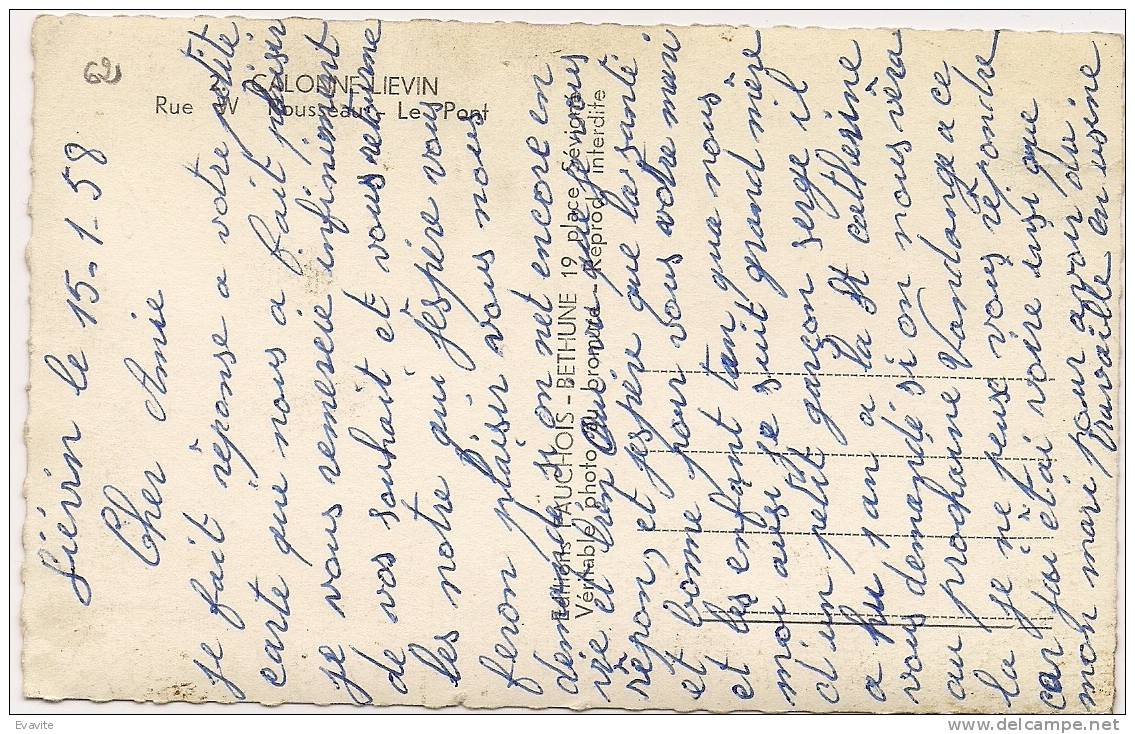 62
CALONNE-LIEVIN
Rue W Rousseau - Le Pont
Editions PAUCHOIS - BETHUNE 19 place Sévigné
Véritable photo au bromure - Reprod. interdite
Liévin le 15-1-58
Cher Amie
je fait réponse a votre petite
carte que nous a fait plaisir
je vous remercie infiniment
de vos souhait et vous retourne
les notre qui j'espère vous
feron plaisir vous nous
demandé si on net encore en
vie et bien oui vu que je vous
répons, et j'espèr que la santé
et bonne pour vous votre mari
et les enfant tan que nous
moi aussi je suit grand mère
d'un petit garçon serge il
a hu 1 an a la St catherine
vous demandé si on nous vèra
au prochaine Vandange a ce
la je ne peux vous répondre
car j'ai étai voire insi que
mon mari pour avoir du
travaille en usine
Evavite
www.delcampe.net